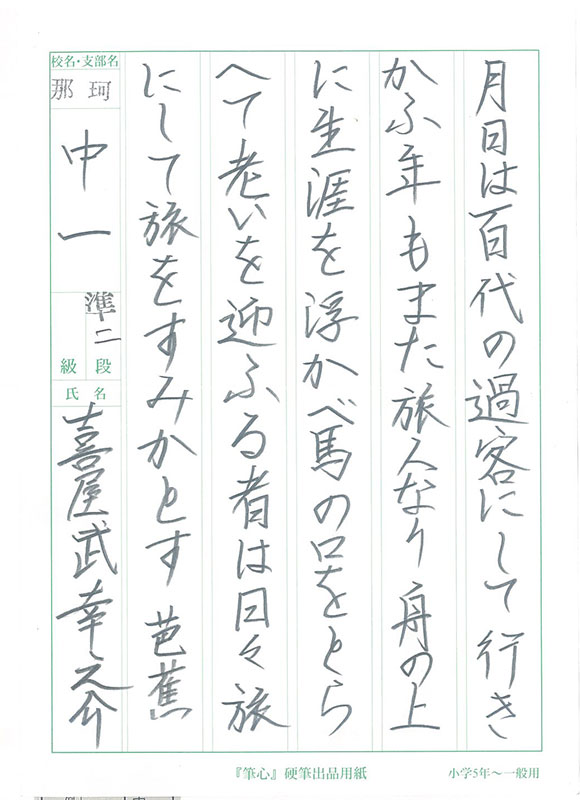 月日は百代の過客にして 行き
かふ年もまた旅人なり 舟の上
に生涯を浮かべ馬の口をとら
へて老いを迎ふる者は日々旅
にして旅をすみかとす 芭蕉
校名・支部名
那珂
中一
準二
級 段
氏名
喜屋武幸之介
『筆心』硬筆出品用紙
小学5年〜一般用